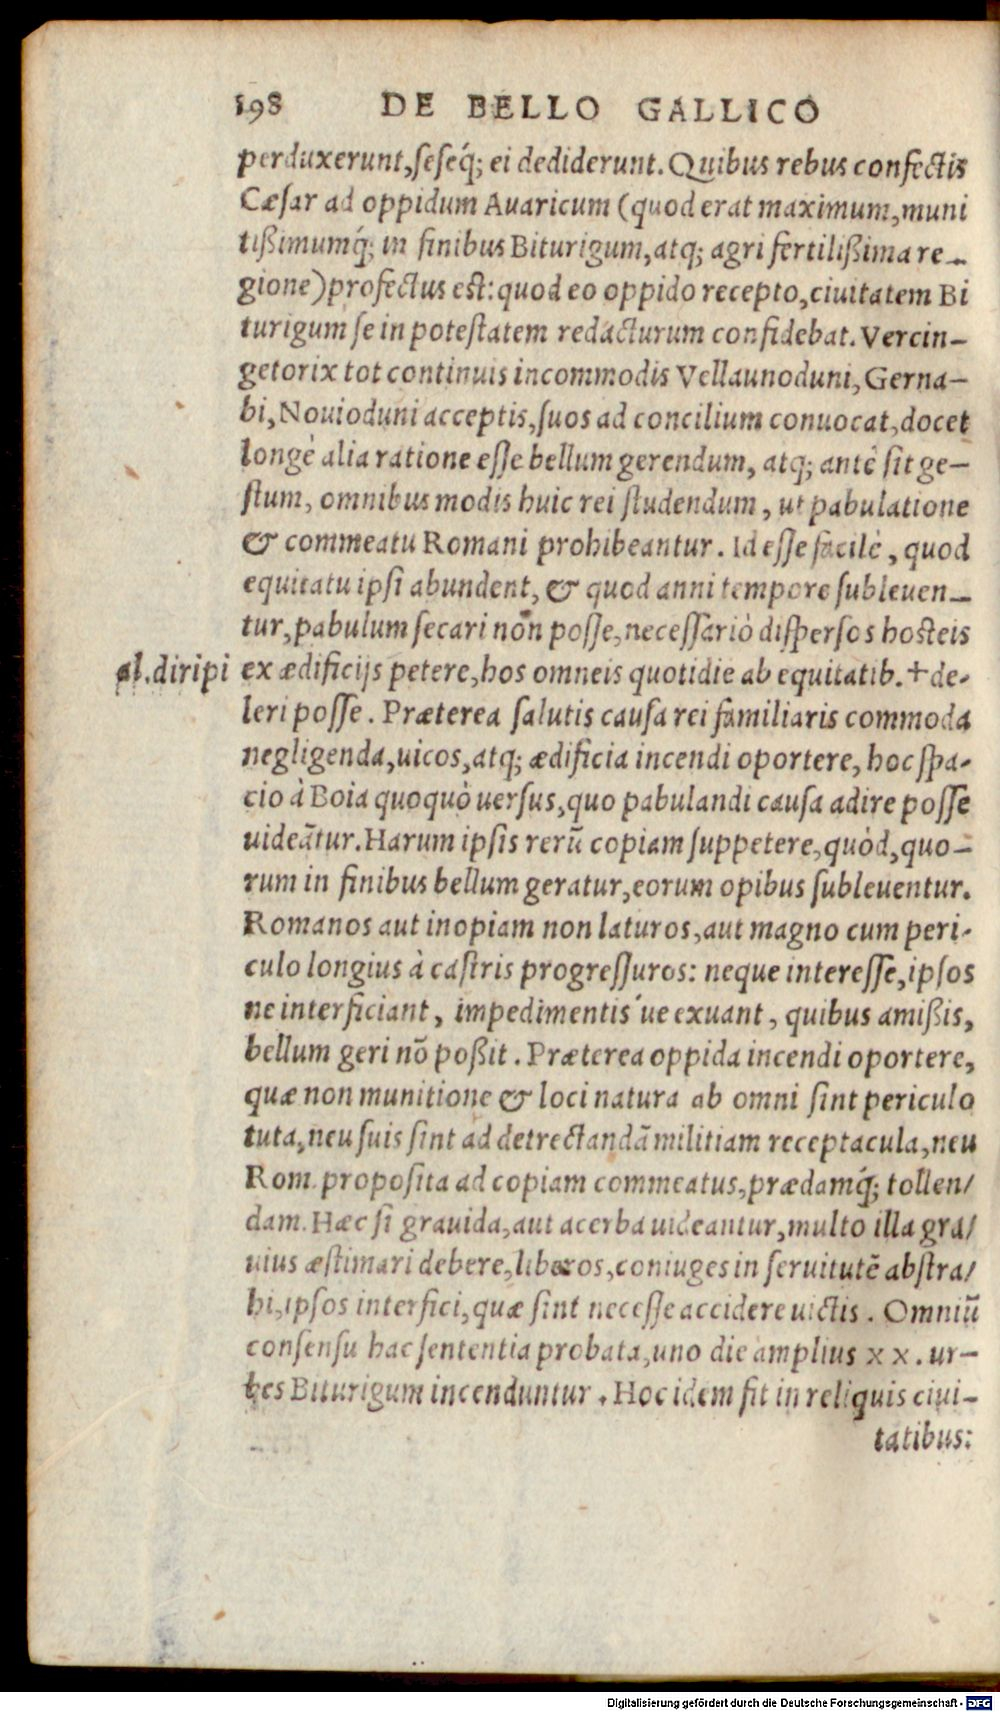 198 DE BELLO GALLICO
perduxerunt,ſeſeq́; ei dediderunt. Quibus rebus confectis
Cæſar ad oppidum Auaricum (quod erat maximum,muni
tißimumq́; in finibus Biturigum,atq; agri fertilißima re-
gione)profectus est: quod eo oppido recepto,ciuitatem Bi
turigum ſe in poteſtatem redacturum confidebat. Vercin-
getorix tot continuis incommodis Vellaunoduni, Gerna-
bi, Nouioduni acceptis,ſuos ad concilium conuocat,docet
longè alia ratione eſſe bellum gerendum, atq; antè ſit ge-
ſtum, omnibus modis huic rei ſtudendum, ut pabulatione
& commeatu Romani prohibeantur. Id eſſe facilè, quod
equitatu ipſi abundent, & quod anni tempore ſubleuen-
tur,pabulum ſecari non poſſe,neceſſariò diſperſos hosteis
al.diripi ex ædificijs petere,hos omneis quotidie ab equitatib.+de-
leri poſſe. Præterea ſalutis cauſa rei familiaris commoda
negligenda,uicos,atq; ædificia incendi oportere, hoc ſpa-
cio à Boia quoquò uerſus,quo pabulandi cauſa adire poſſe
uideãtur. Harum ipſis rerũ copiam ſuppetere,quòd,quo-
rum in finibus bellum geratur,eorum opibus ſubleuentur.
Romanos aut inopiam non laturos,aut magno cum peri-
culo longius à caſtris progreſſuros: neque intereſſe,ipſos
ne interficiant, impedimentis ́ue exuant, quibus amißis,
bellum geri nõ poßit. Præterea oppida incendi oportere,
quæ non munitione & loci natura ab omni ſint periculo
tuta,neu ſuis ſint ad detrectandã militiam receptacula,neu
Rom. propoſita ad copiam commeatus,prædamq́; tollen/
dam. Hæc ſi grauida,aut acerba uideantur,multo illa gra/
uius æſtimari debere,liberos,coniuges in ſeruitutẽ abſtra/
hi,ipſos interfici,quæ ſint neceſſe accidere uictis. Omniũ
conſenſu hac ſententia probata,uno die amplius x x. ur-
bes Biturigum incenduntur. Hoc idem fit in reliquis ciui-
tatibus:
Digitalisierung gefördert durch die Deutsche Forschungsgemeinschaft - DFG